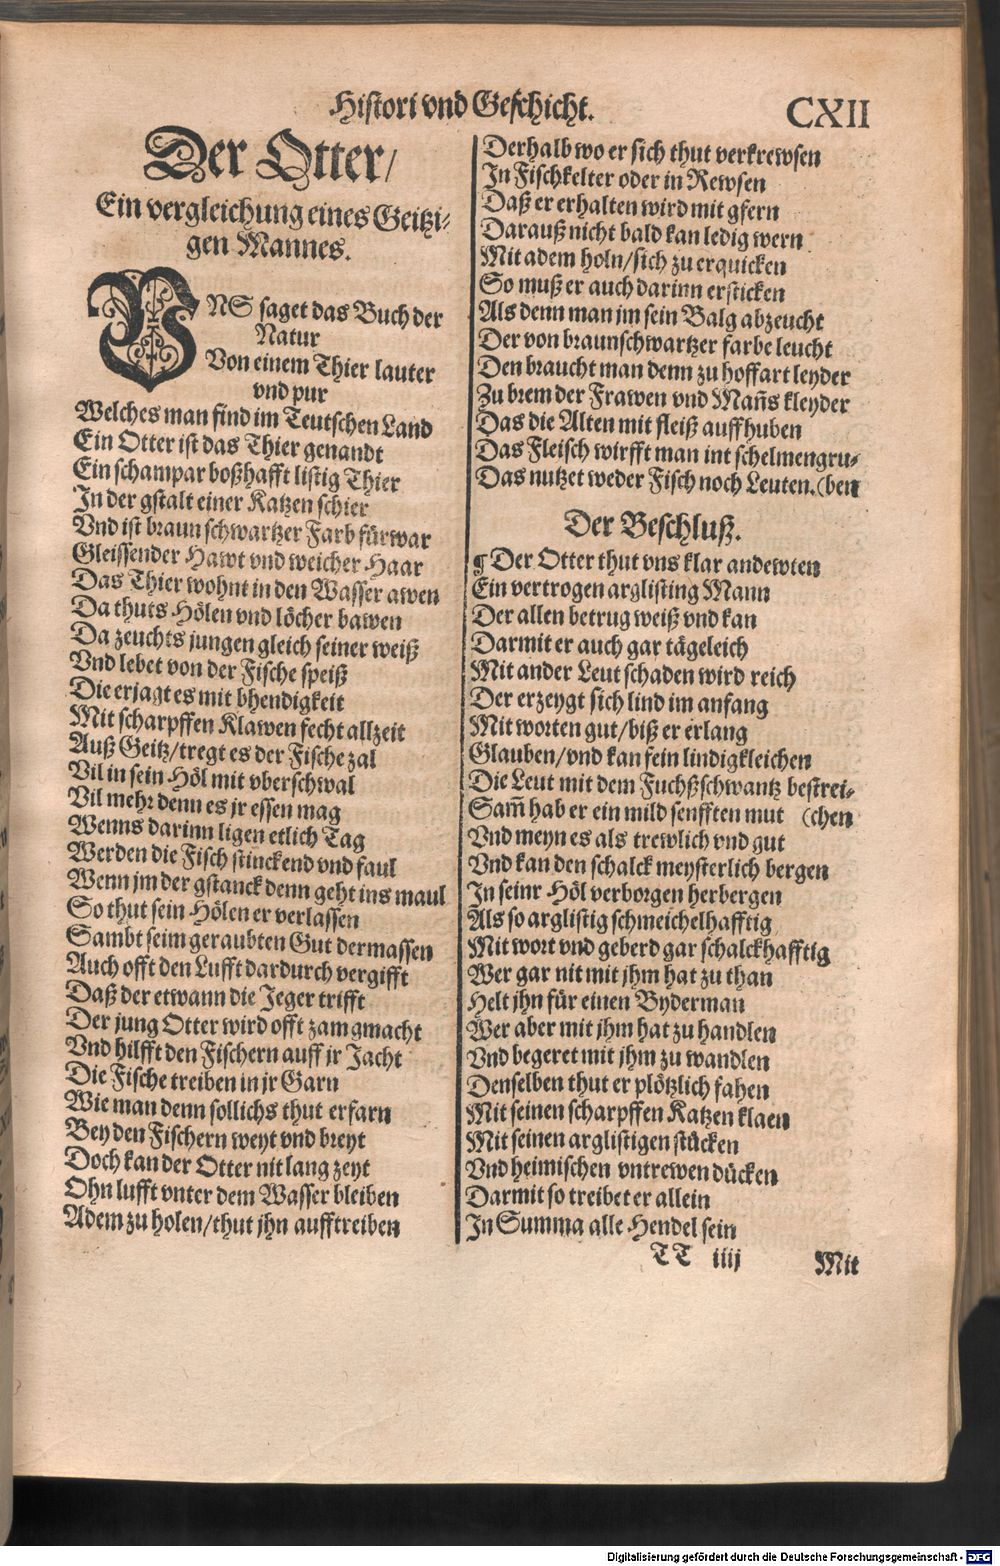 Histori vnd Geschicht.
CXII
Der Otter/
Ein vergleichung eines Geitzi-
gen Mannes.
VNS saget das Buch der
Natur
Von einem Thier lauter
vnd pur
Welches man find im Teutschen Land
Ein Otter ist das Thier genandt
Ein schampar boßhafft listig Thier
In der gstalt einer Katzen schier
Vnd ist braun schwartzer Farb fürwar
Gleissender Hawt vnd weicher Haar
Das Thier wohnt in den Wasser awen
Da thuts Hölen vnd löcher bawen
Da zeuchts jungen gleich seiner weiß
Vnd lebet von der Fische speiß
Die erjagt es mit bhendigkeit
Mit scharpffen Klawen fecht allzeit
Auß Geitz/tregt es der Fische zal
Vil in sein Höl mit vberschwal
Vil mehr denn es jr essen mag
Wenns darinn ligen etlich Tag
Werden die Fisch stinckend vnd faul
Wenn jm der gstanck denn geht ins maul
So thut sein Hölen er verlassen
Sambt seim geraubten Gut dermassen
Auch offt den Lufft dardurch vergifft
Daß der etwann die Jeger trifft
Der jung Otter wird offt zam gmacht
Vnd hilfft den Fischern auff jr Jacht
Die Fische treiben in jr Garn
Wie man denn sollichs thut erfarn
Bey den Fischern weyt vnd breyt
Doch kan der Otter nit lang zeyt
Ohn lufft vnter dem Wasser bleiben
Adem zu holen/thut jhn aufftreiben
Derhalb wo er sich thut verkrewsen
In Fischkelter oder in Rewsen
Daß er erhalten wird mit gfern
Darauß nicht bald kan ledig wern
Mit adem holn/sich zu erquicken
So muß er auch darinn ersticken
Als denn man jm sein Balg abzeucht
Der von braunschwartzer farbe leucht
Den braucht man denn zu hoffart leyder
Zu brem der Frawen vnd Mañs kleyder
Das die Alten mit fleiß auffhuben
Das Fleisch wirfft man int schelmengru-
Das nutzet weder Fisch noch Leuten.(ben
Der Beschluß.
¶ Der Otter thut vns klar andewten
Ein vertrogen arglisting Mann
Der allen betrug weiß vnd kan
Darmit er auch gar tägeleich
Mit ander Leut schaden wird reich
Der erzeygt sich lind im anfang
Mit worten gut/biß er erlang
Glauben/vnd kan fein lindigkleichen
Die Leut mit dem Fuchßschwantz bestrei-
Sam̃ hab er ein mild senfften mut (chen
Vnd meyn es als trewlich vnd gut
Vnd kan den schalck meysterlich bergen
In seinr Höl verborgen herbergen
Als so arglistig schmeichelhafftig
Mit wort vnd geberd gar schalckhafftig
Wer gar nit mit jhm hat zu than
Helt jhn für einen Byderman
Wer aber mit jhm hat zu handlen
Vnd begeret mit jhm zu wandlen
Denselben thut er plötzlich fahen
Mit seinen scharpffen Katzen klaen
Mit seinen arglistigen stücken
Vnd heimischen vntrewen dücken
Darmit so treibet er allein
In Summa alle Hendel sein
TT iiij
Mit
Digitalisierung gefördert durch die Deutsche Forschungsgemeinschaft - DFG